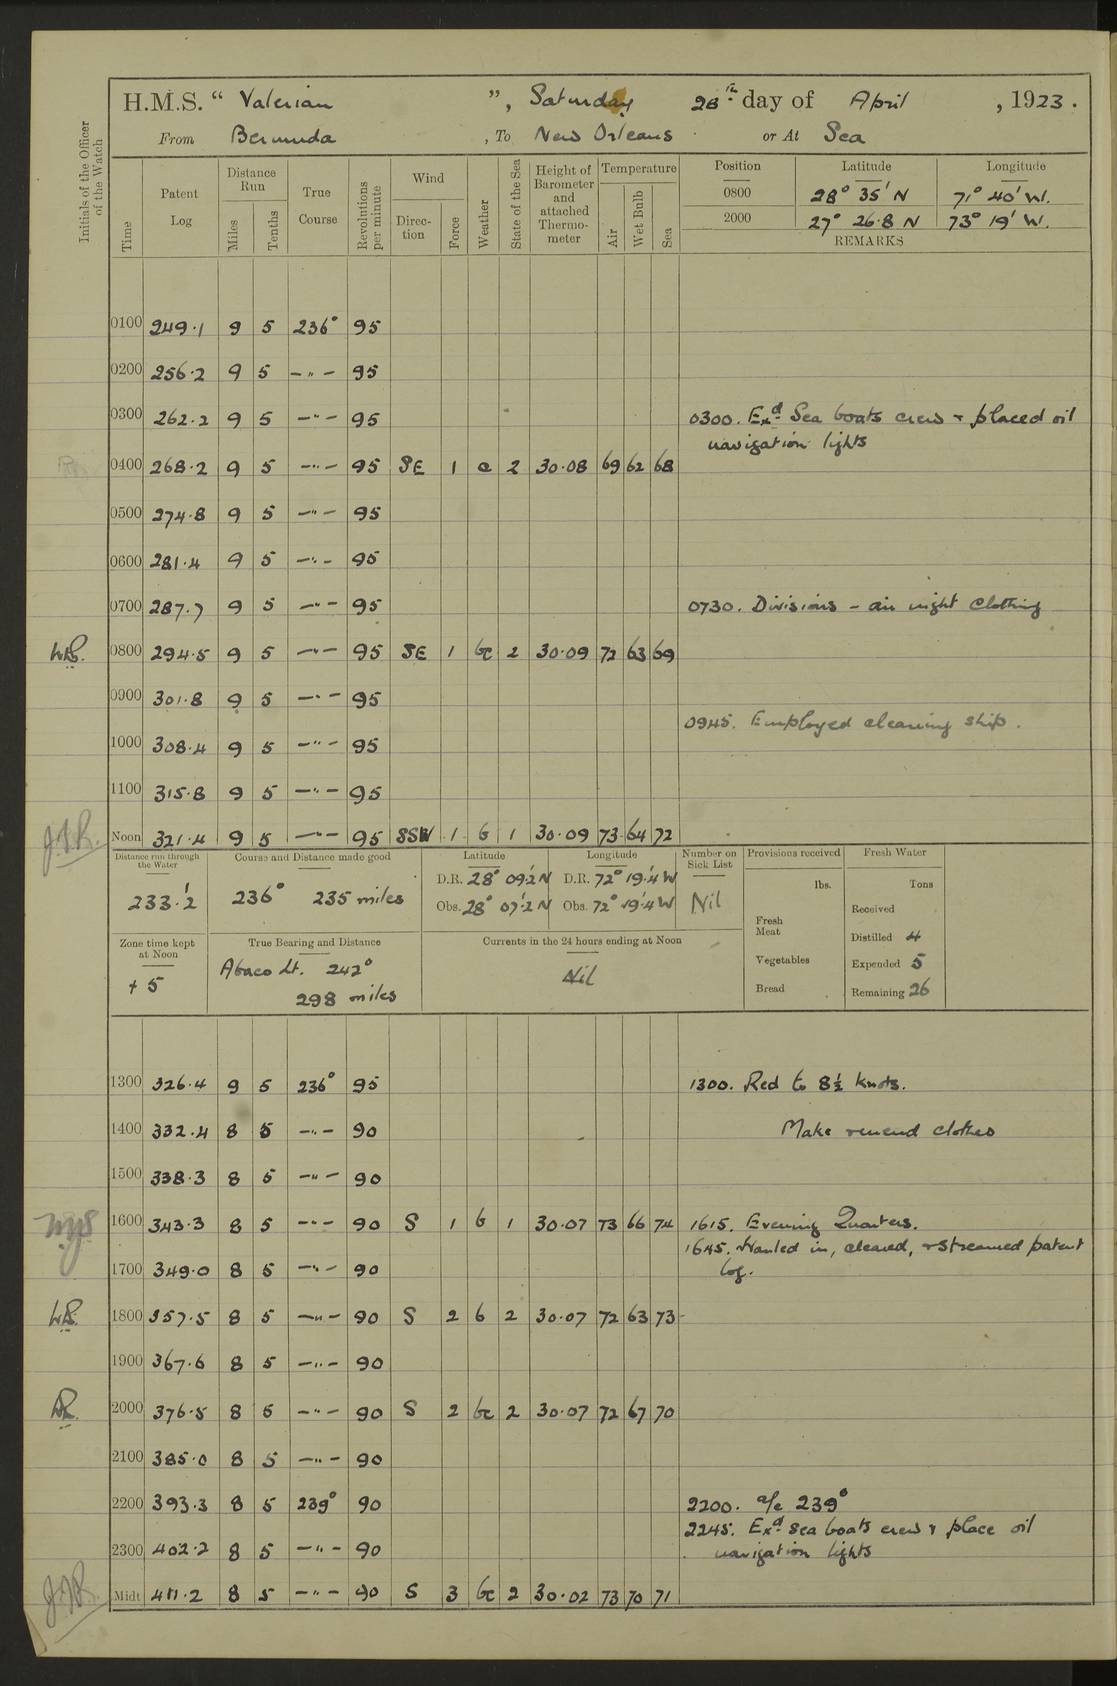 H.M.S. “ Valerian ”, Saturday 28th day of April , 1923.
From Bermuda , To New Orleans or At Sea
Initials of the Officer of the Watch
Time
Patent Log
Distance Run
Miles
Tenths
True Course
Revolutions per minute
Wind
Direc-tion
Force
Weather
State of the Sea
Height of Barometer and attached Thermo-meter
Temperature
Air
Wet Bulb
Sea
Position Latitude Longitude
0800 28° 35' N 71° 40' W.
2000 27° 26.8 N 73° 19' W.
REMARKS
0100 249.1 9 5 236° 95
0200 256.2 9 5 — " — 95
0300 262.2 9 5 — " — 95 0300. Exd Sea boats crew & placed oil
navigation lights
0400 268.2 9 5 — " — 95 SE 1 c 2 30.08 69 62 68
0500 274.8 9 5 — " — 95
0600 281.4 9 5 — " — 95
0700 287.7 9 5 — " — 95 0730. Divisions – air night clothing
0800 294.5 9 5 — " — 95 SE 1 bc 2 30.09 72 63 69
0900 301.8 9 5 — " — 95
0945. Employed cleaning ship.
1000 308.4 9 5 — " — 95
1100 315.8 9 5 — " — 95
Noon 321.4 9 5 — " — 95 SSW 1 b 1 30.09 73 64 72
Distance run through the Water
233.2'
Course and Distance made good
236° 235 miles
Latitude
D.R. 28° 09.2' N
Obs. 28° 07.2' N
Longitude
D.R. 72° 19.4' W
Obs. 72° 19.4' W
Number on Sick List
Nil
Provisions received
lbs.
Fresh Meat
Vegetables
Bread
Fresh Water
Tons
Received
Distilled 4
Expended 5
Remaining 26
Zone time kept at Noon
+ 5
True Bearing and Distance
Abaco Lt. 242°
298 miles
Currents in the 24 hours ending at Noon
Nil
1300 326.4 9 5 236° 95 1300. Red to 8½ knots.
1400 332.4 8 5 — " — 90 Make & mend clothes
1500 338.3 8 5 — " — 90
1600 343.3 8 5 — " — 90 S 1 b 1 30.07 73 66 74 1615. Evening Quarters.
1645. Hauled in, cleared, & streamed patent
1700 349.0 8 5 — " — 90 log.
1800 357.5 8 5 — " — 90 S 2 b 2 30.07 72 63 73
1900 367.6 8 5 — " — 90
2000 376.5 8 5 — " — 90 S 2 bc 2 30.07 72 67 70
2100 385.0 8 5 — " — 90
2200 393.3 8 5 239° 90 2200. a/c 239°
2245. Exd sea boats crew & place oil
2300 402.2 8 5 — " — 90 navigation lights
Midt 411.2 8 5 — " — 90 S 3 bc 2 30.02 73 70 71